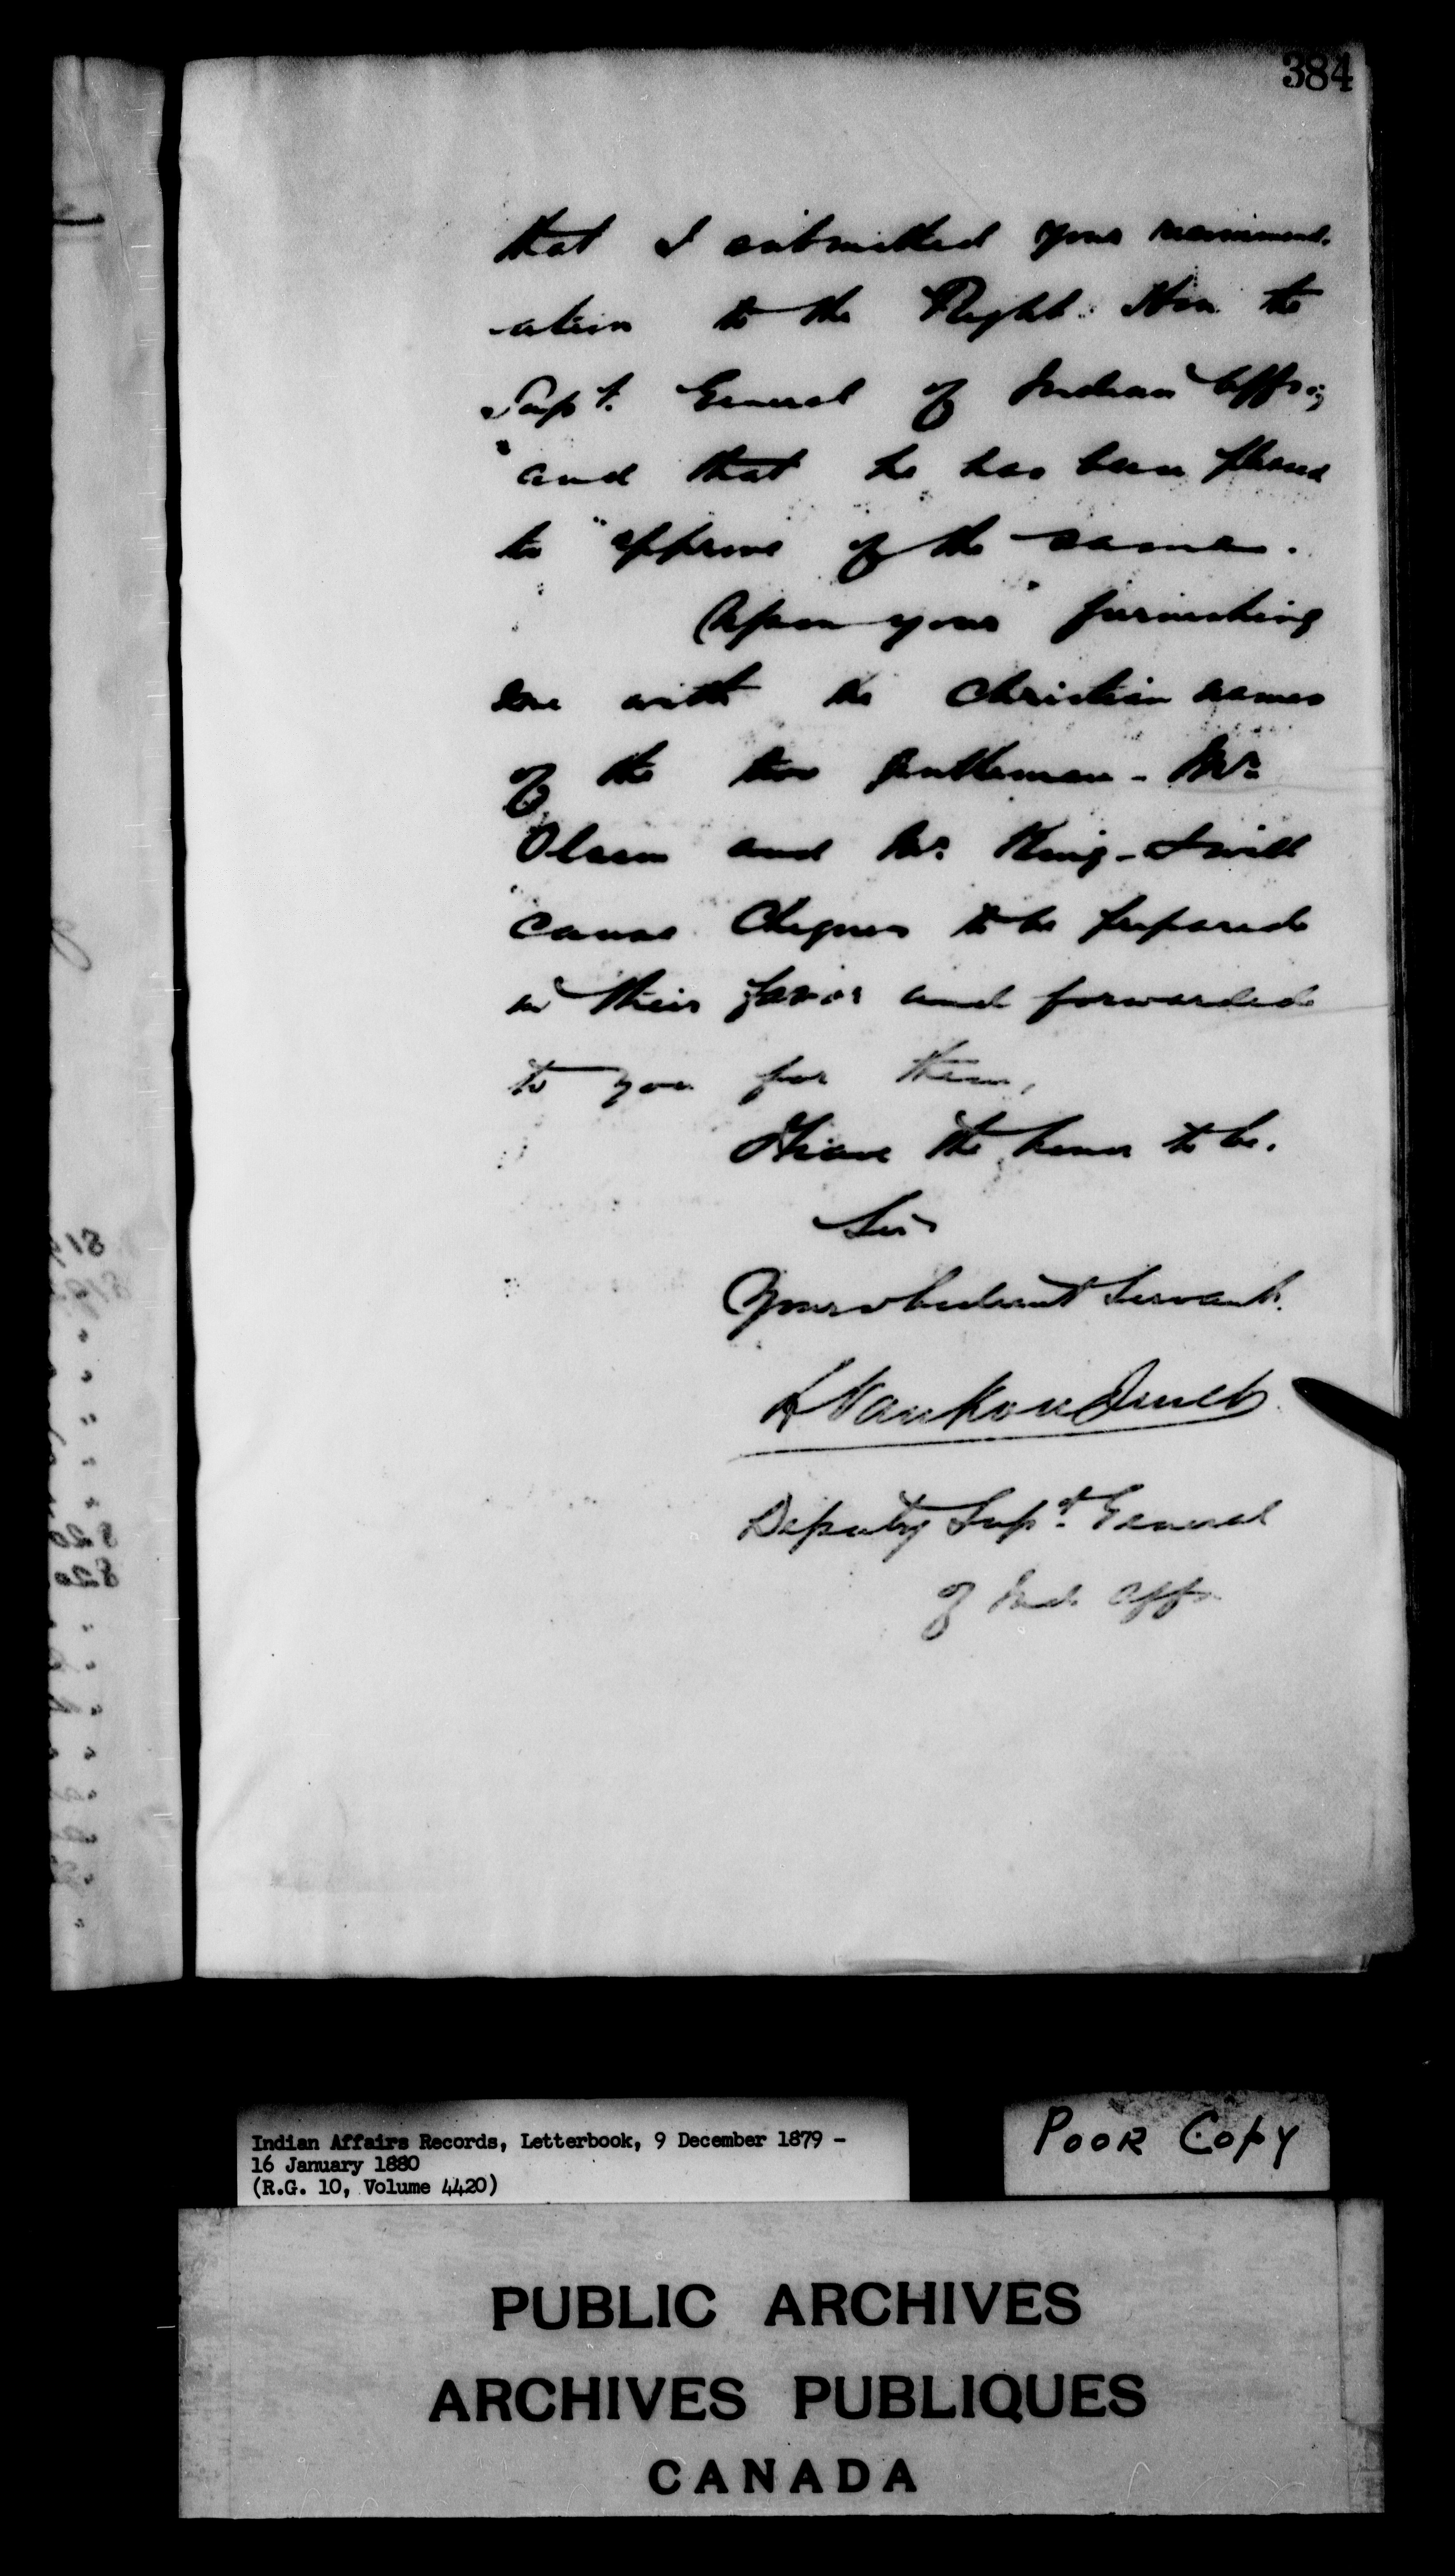 384
that I submitted your recommend-
-ation to the Right Hon. the
Supt. General of Indian Affrs;
and that he has been pleased
to approve of the same.
Upon your furnishing
me with the Christian names
of the two gentlemen - Mr.
Olsen and Mr. King - I will
cause Cheques to be prepared
in their favor and forwarded
to you for them,
I have the honor to be.
Sir
Your obedient Servant.
L VanKoughnet
Deputy Supt. General
of Ind. Affrs
819
819
820
820
Indian Affairs Records, Letterbook, 9 December 1879 -
16 January 1880
(R.G. 10, Volume 4420)
POOR COPY
PUBLIC ARCHIVES
ARCHIVES PUBLIQUES
CANADA